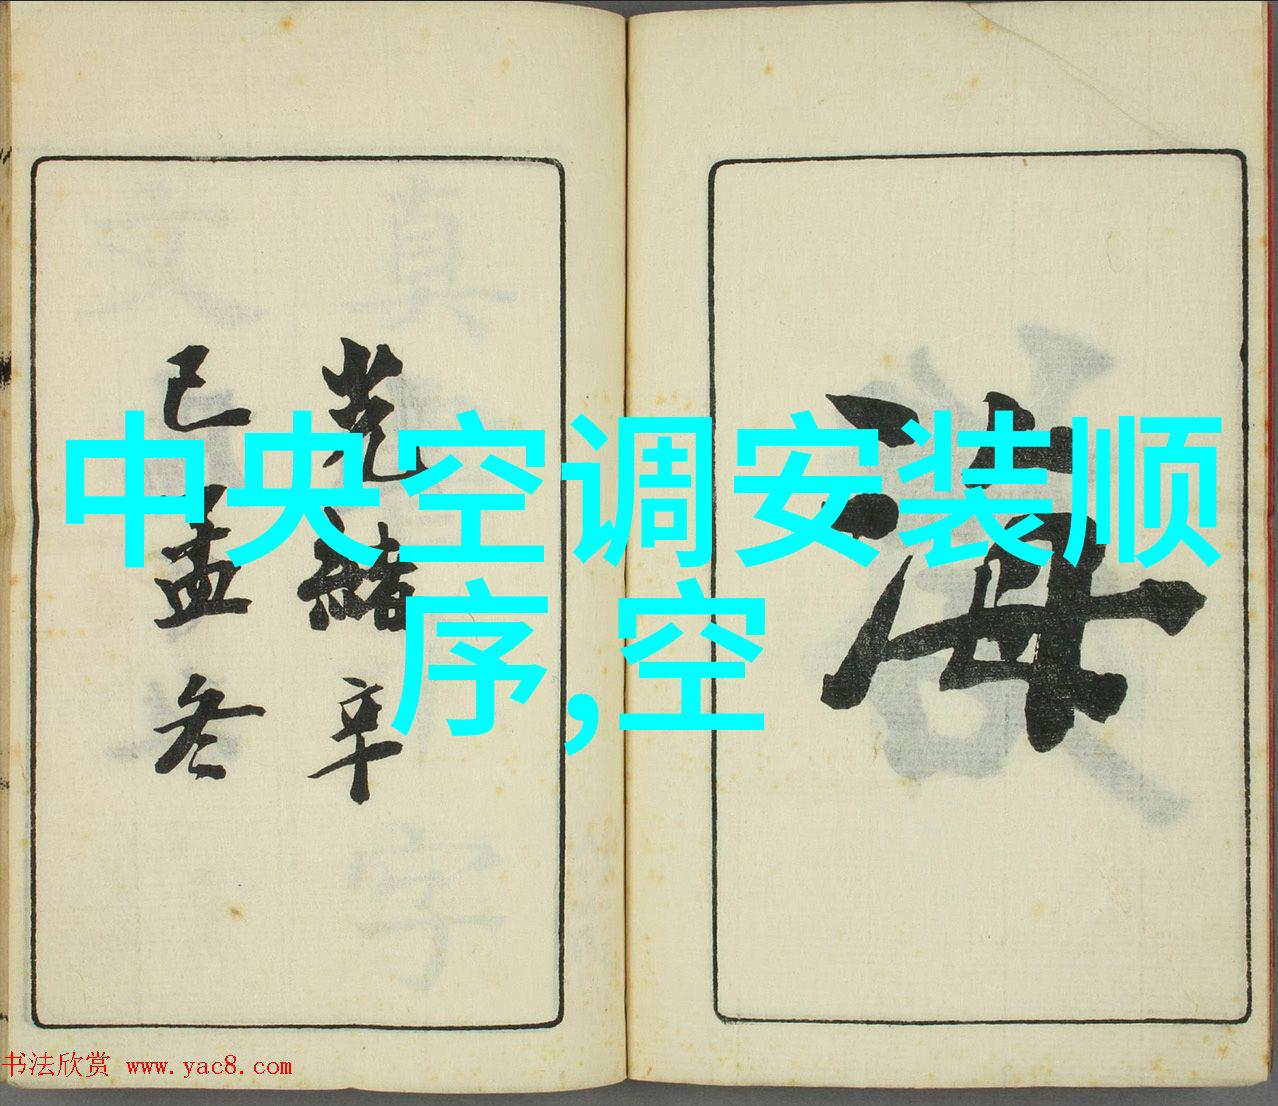 中央空调安装顺
序,空
光绪辛
已孟冬
海
书法欣赏 www.yac8.com